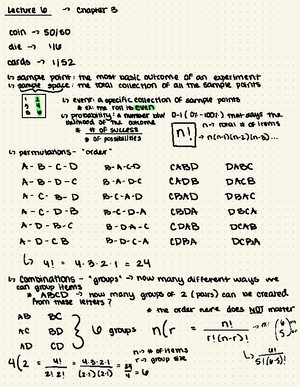 Lecture 6 → Chapter 3
coin → 50/50
die → 1/6
cards → 1/52
↳ sample point: the most basic outcome of an experiment
↳ sample space: the total collection of all the sample points
1 2
3 4
5 6
↳ event: a specific collection of sample points
* ex: the roll is even
↳ probability: a number b/w 0-1 (0%-100%) that says the
likelihood of the outcome
* # of success
# of possibilities
n!
n → total # of items
→ n(n-1)(n-2)(n-3)...
↳ permutations - "order"
A-B-C-D B-A-C-D CABD DABC
A-B-D-C B-A-D-C CADB DACB
A-C-B-D B-C-A-D CBAD DBAC
A-C-D-B B-C-D-A CBDA DBCA
A-D-B-C B-D-A-C CDAB DCAB
A-D-CB B-D-C-A CDBA DCBA
↳ 4! = 4·3·2·1 = 24
↳ Combinations - "groups" → how many different ways we
can group items
* ABCD → how many groups of 2 (pairs) can be created
from these letters?
* the order does NOT matter
AB BC
AC BD
AD CD
} 6 groups
nCr = n! / r!(n-r)!
4C2 = 4! / 2!2! = 4·3·2·1 / (2·1)(2·1) = 24/4 = 6
n → # of items
r → group size
6!
5!(6-5)!